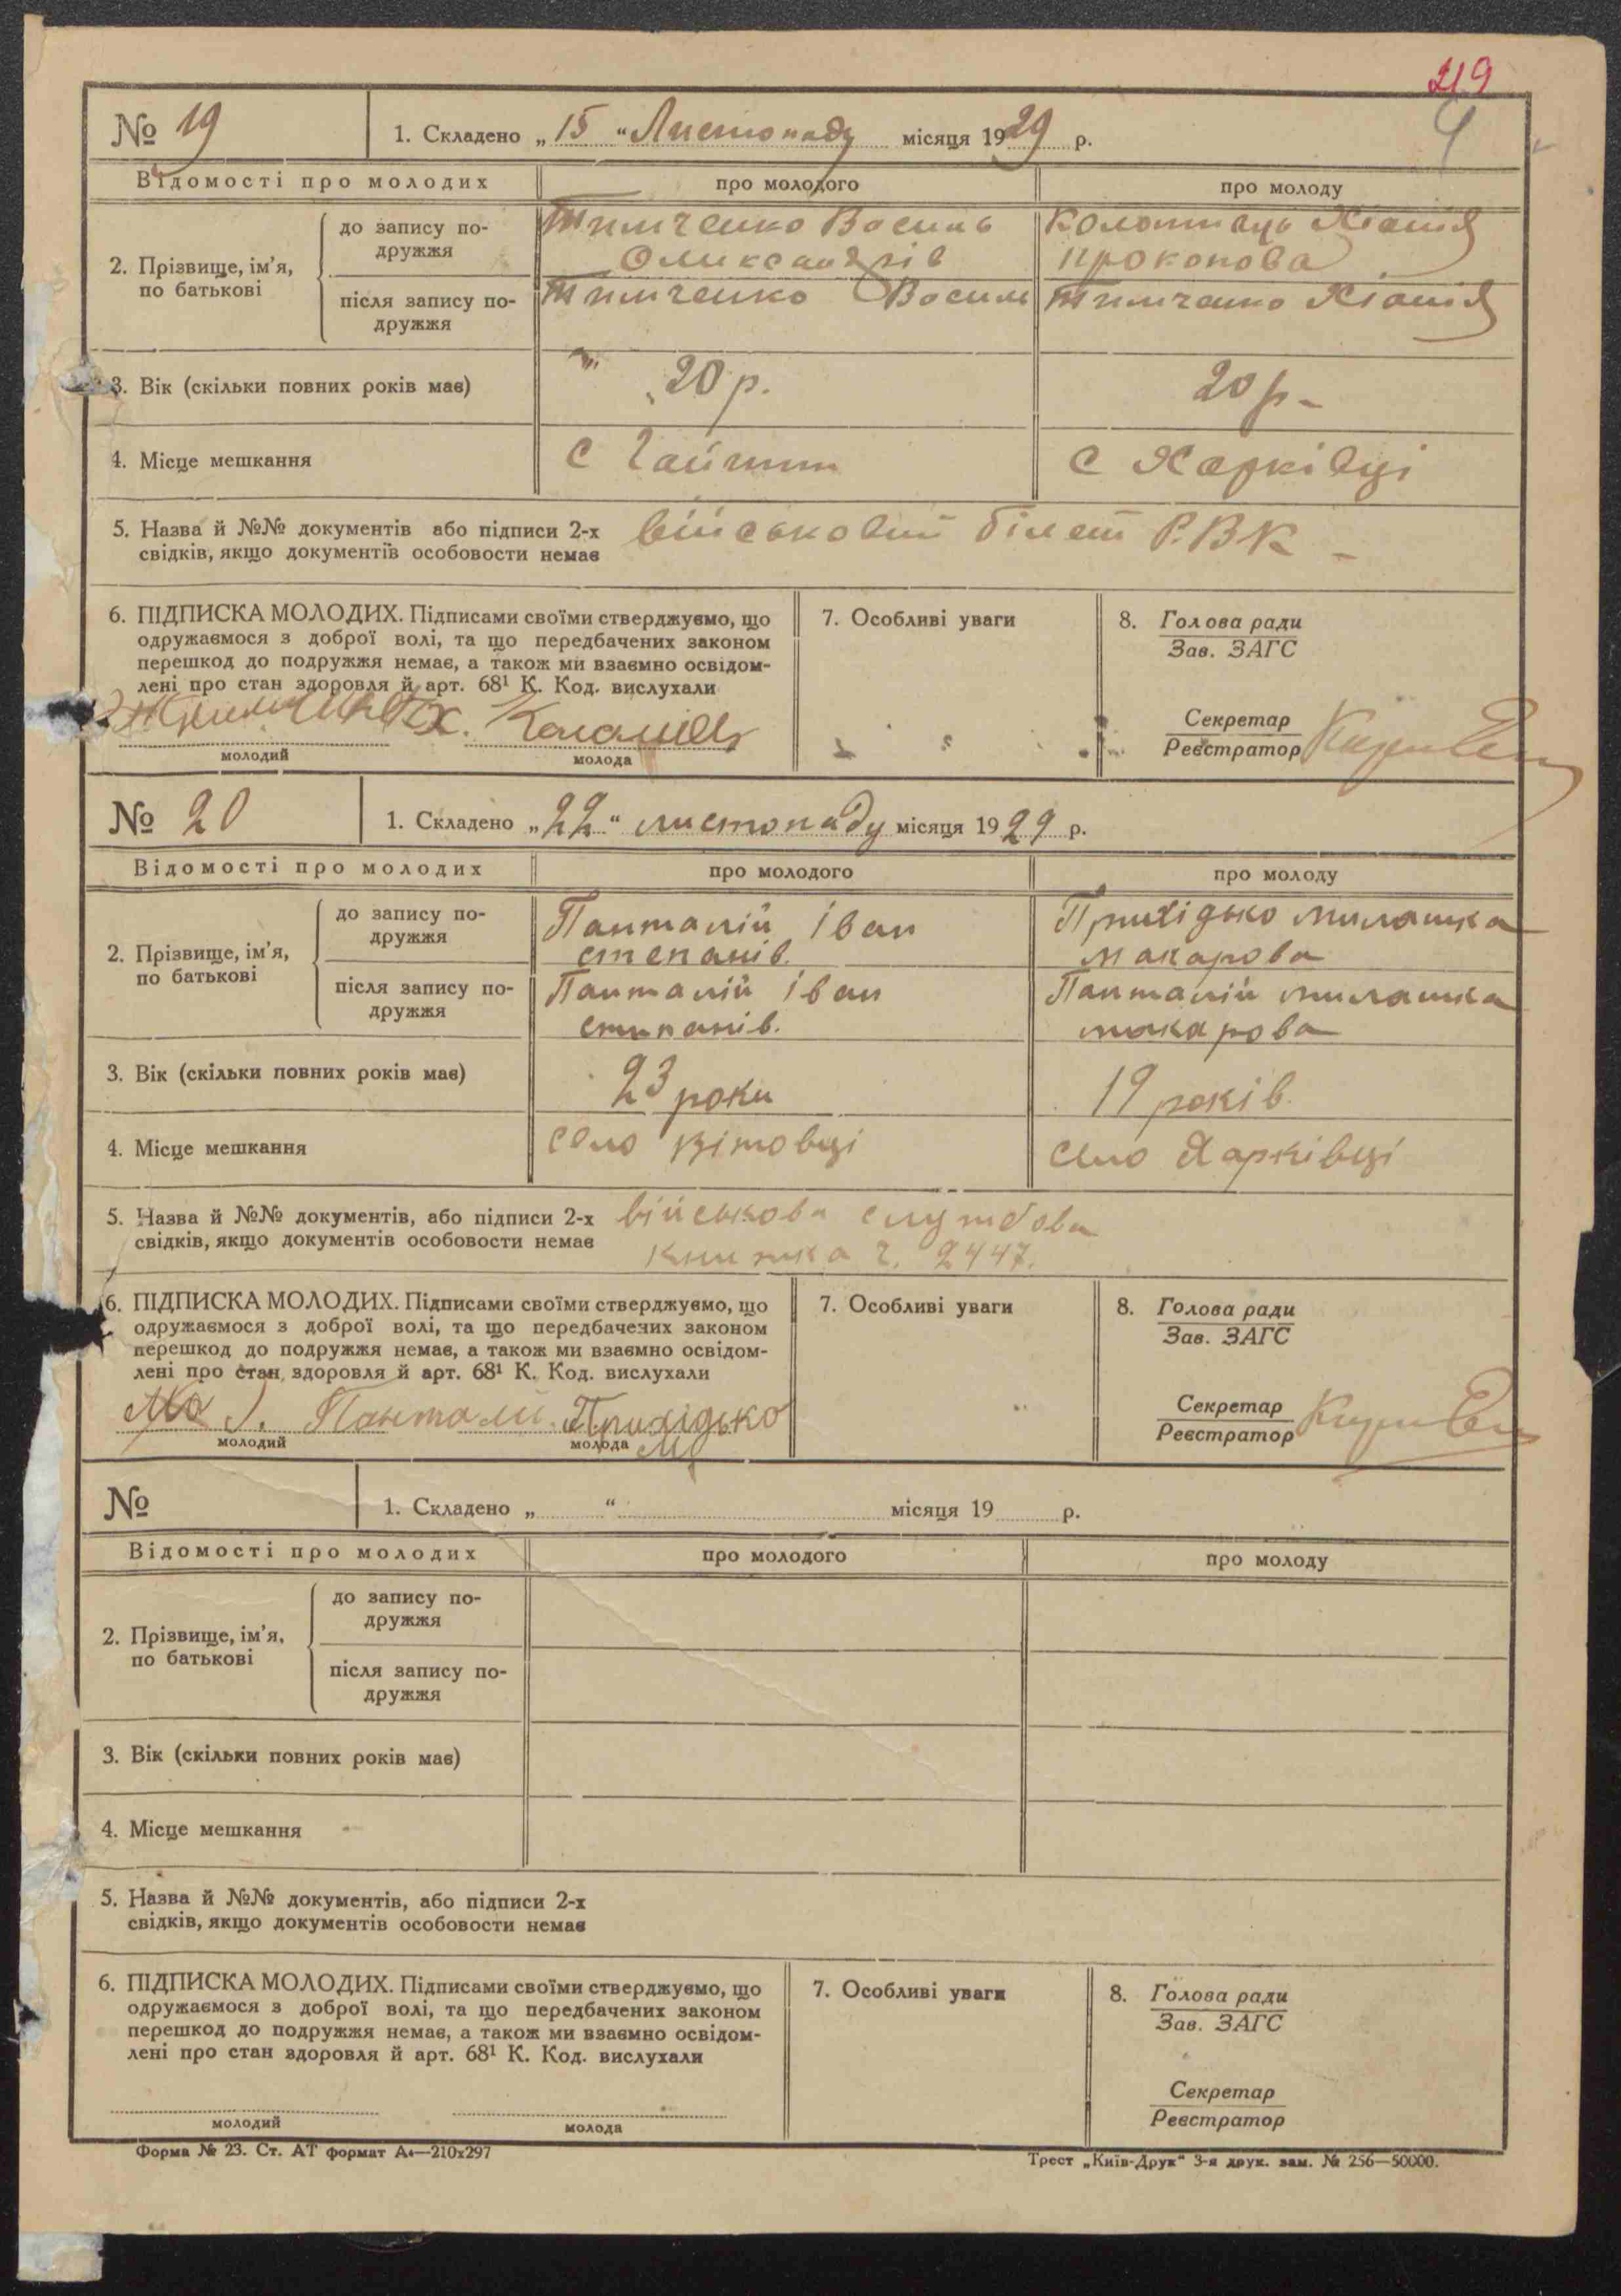 219
4
№ 19
1. Складено „ 15 “ Листопаду місяця 1929 р.
Відомості про молодих
про молодого
про молоду
2. Прізвище, ім’я, по батькові
до запису по-
дружжя
Тимченко Василь
Олександрів
Коломиець
Прокопова
після запису по-
дружжя
Тимченко Василь
Тимченко
3. Вік (скільки повних років має)
20 р.
20 р –
4. Місце мешкання
С Гайшин
С Харківці
5. Назва й №№ документів або підписи 2-х
свідків, якщо документів особовости немає
військовий білет Р.В.К –
6. ПІДПИСКА МОЛОДИХ. Підписами своїми стверджуємо, що
одружаємося з доброї волі, та що передбачених законом
перешкод до подружжя немає, а також ми взаємно освідом-
лені про стан здоровля й арт. 68¹ К. Код. вислухали
Х. Коломиец
молодий
молода
7. Особливі уваги
8. Голова ради
Зав. ЗАГС
Секретар
Реєстратор
№ 20
1. Складено „ 22 “ листопаду місяця 1929 р.
Відомості про молодих
про молодого
про молоду
2. Прізвище, ім’я,
по батькові
до запису по-
дружжя
Панталій Іван
степанів.
Прихідько Милашка
макарова
після запису по-
дружжя
Панталій Іван
стипанів.
Панталій милашка
макарова
3. Вік (скільки повних років має)
23 роки
19 років.
4. Місце мешкання
село Вітовці
село Харківці
5. Назва й №№ документів, або підписи 2-х
свідків, якщо документів особовости немає
військова службова
книжка ч. 2447.
6. ПІДПИСКА МОЛОДИХ. Підписами своїми стверджуємо, що
одружаємося з доброї волі, та що передбачених законом
перешкод до подружжя немає, а також ми взаємно освідом-
лені про стан здоровля й арт. 68¹ К. Код. вислухали
Панталій Прихідько
М
молодий
молода
7. Особливі уваги
8. Голова ради
Зав. ЗАГС
Секретар
Реєстратор
№
1. Складено „ “ місяця 19 р.
Відомості про молодих
про молодого
про молоду
2. Прізвище, ім’я,
по батькові
до запису по-
дружжя
після запису по-
дружжя
3. Вік (скільки повних років має)
4. Місце мешкання
5. Назва й №№ документів, або підписи 2-х
свідків, якщо документів особовости немає
6. ПІДПИСКА МОЛОДИХ. Підписами своїми стверджуємо, що
одружаємося з доброї волі, та що передбачених законом
перешкод до подружжя немає, а також ми взаємно освідом-
лені про стан здоровля й арт. 68¹ К. Код. вислухали
молодий
молода
7. Особливі уваги
8. Голова ради
Зав. ЗАГС
Секретар
Реєстратор
Форма № 23. Ст. АТ формат А₄—210х297
Трест „Київ-Друк“ 3-я друк. зам. № 256—50000.